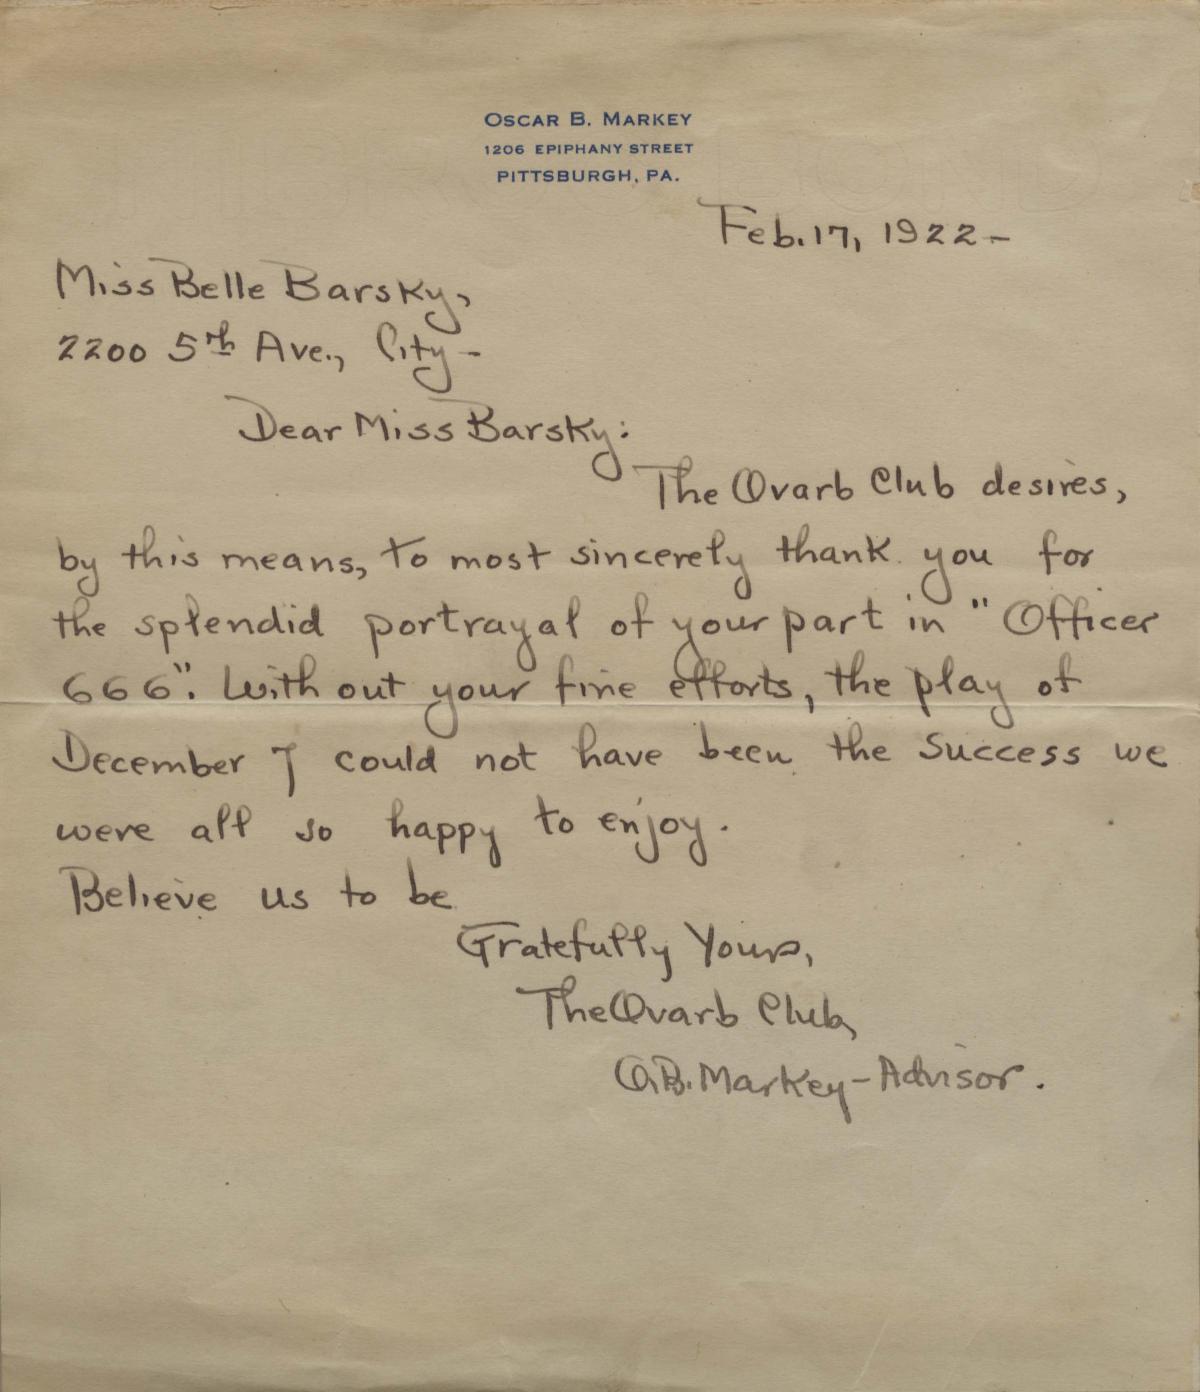 OSCAR B. MARKEY
1206 EPIPHANY STREET
PITTSBURGH, PA.
Feb. 17, 1922-
Miss Belle Barsky,
2200 5th Ave., City-
Dear Miss Barsky:
The Ovarb Club desires,
by this means, to most sincerely thank you for
the splendid portrayal of your part in "Officer
666". Without your fine efforts, the play of
December 7 could not have been the success we
were all so happy to enjoy.
Believe us to be
Gratefully Yours,
The Ovarb Club,
O.B. Markey-Advisor.